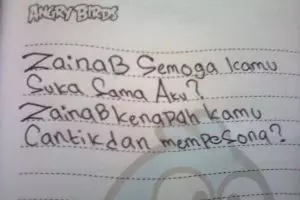 ANGRY BIRDS
ZainaB Semoga kamu
Suka Sama Aku?
ZainaB kenapah kamu
Cantik dan mempesona?